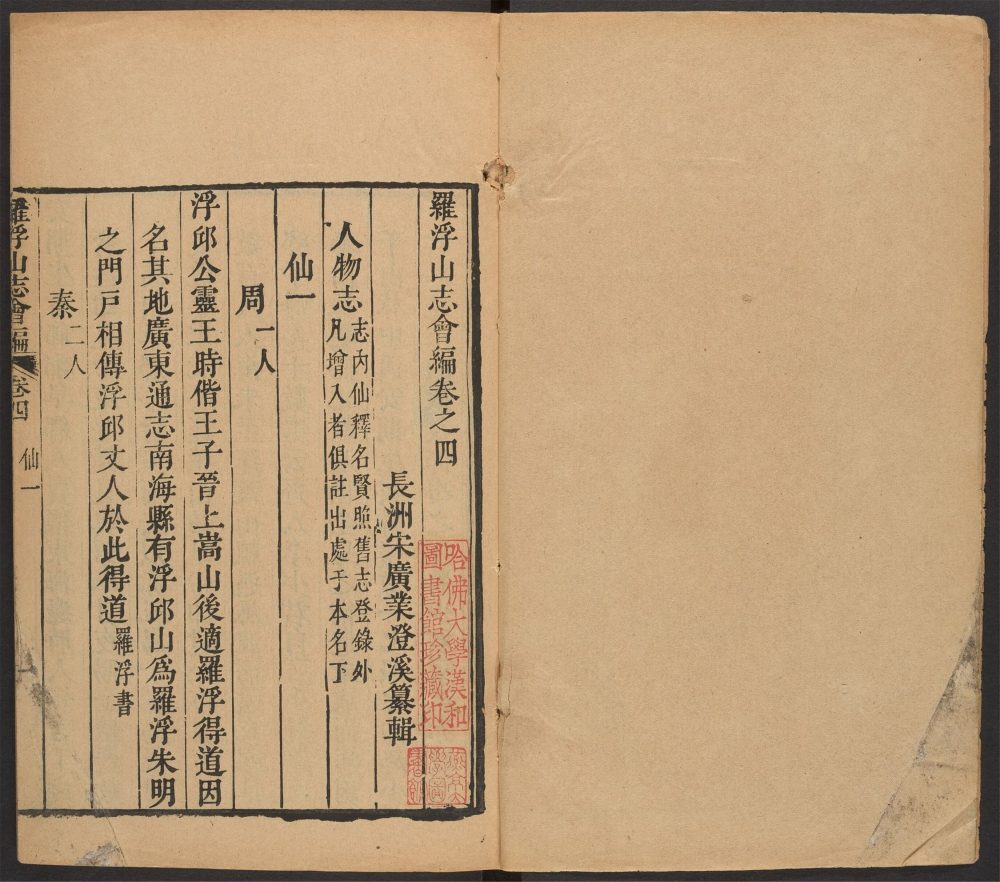 羅浮山志會編卷之四
長洲宋廣業澄溪纂輯
人物志
志內仙釋名賢照舊志登錄外
凡增入者俱註出處于本名下
仙一
周一人
浮邱公靈王時偕王子晉上嵩山後適羅浮得道因
名其地廣東通志南海縣有浮邱山爲羅浮朱明
之門戶相傳浮邱丈人於此得道羅浮書
秦二人
羅浮山志會編 卷四 仙一
哈佛大學漢和
圖書館珍藏印